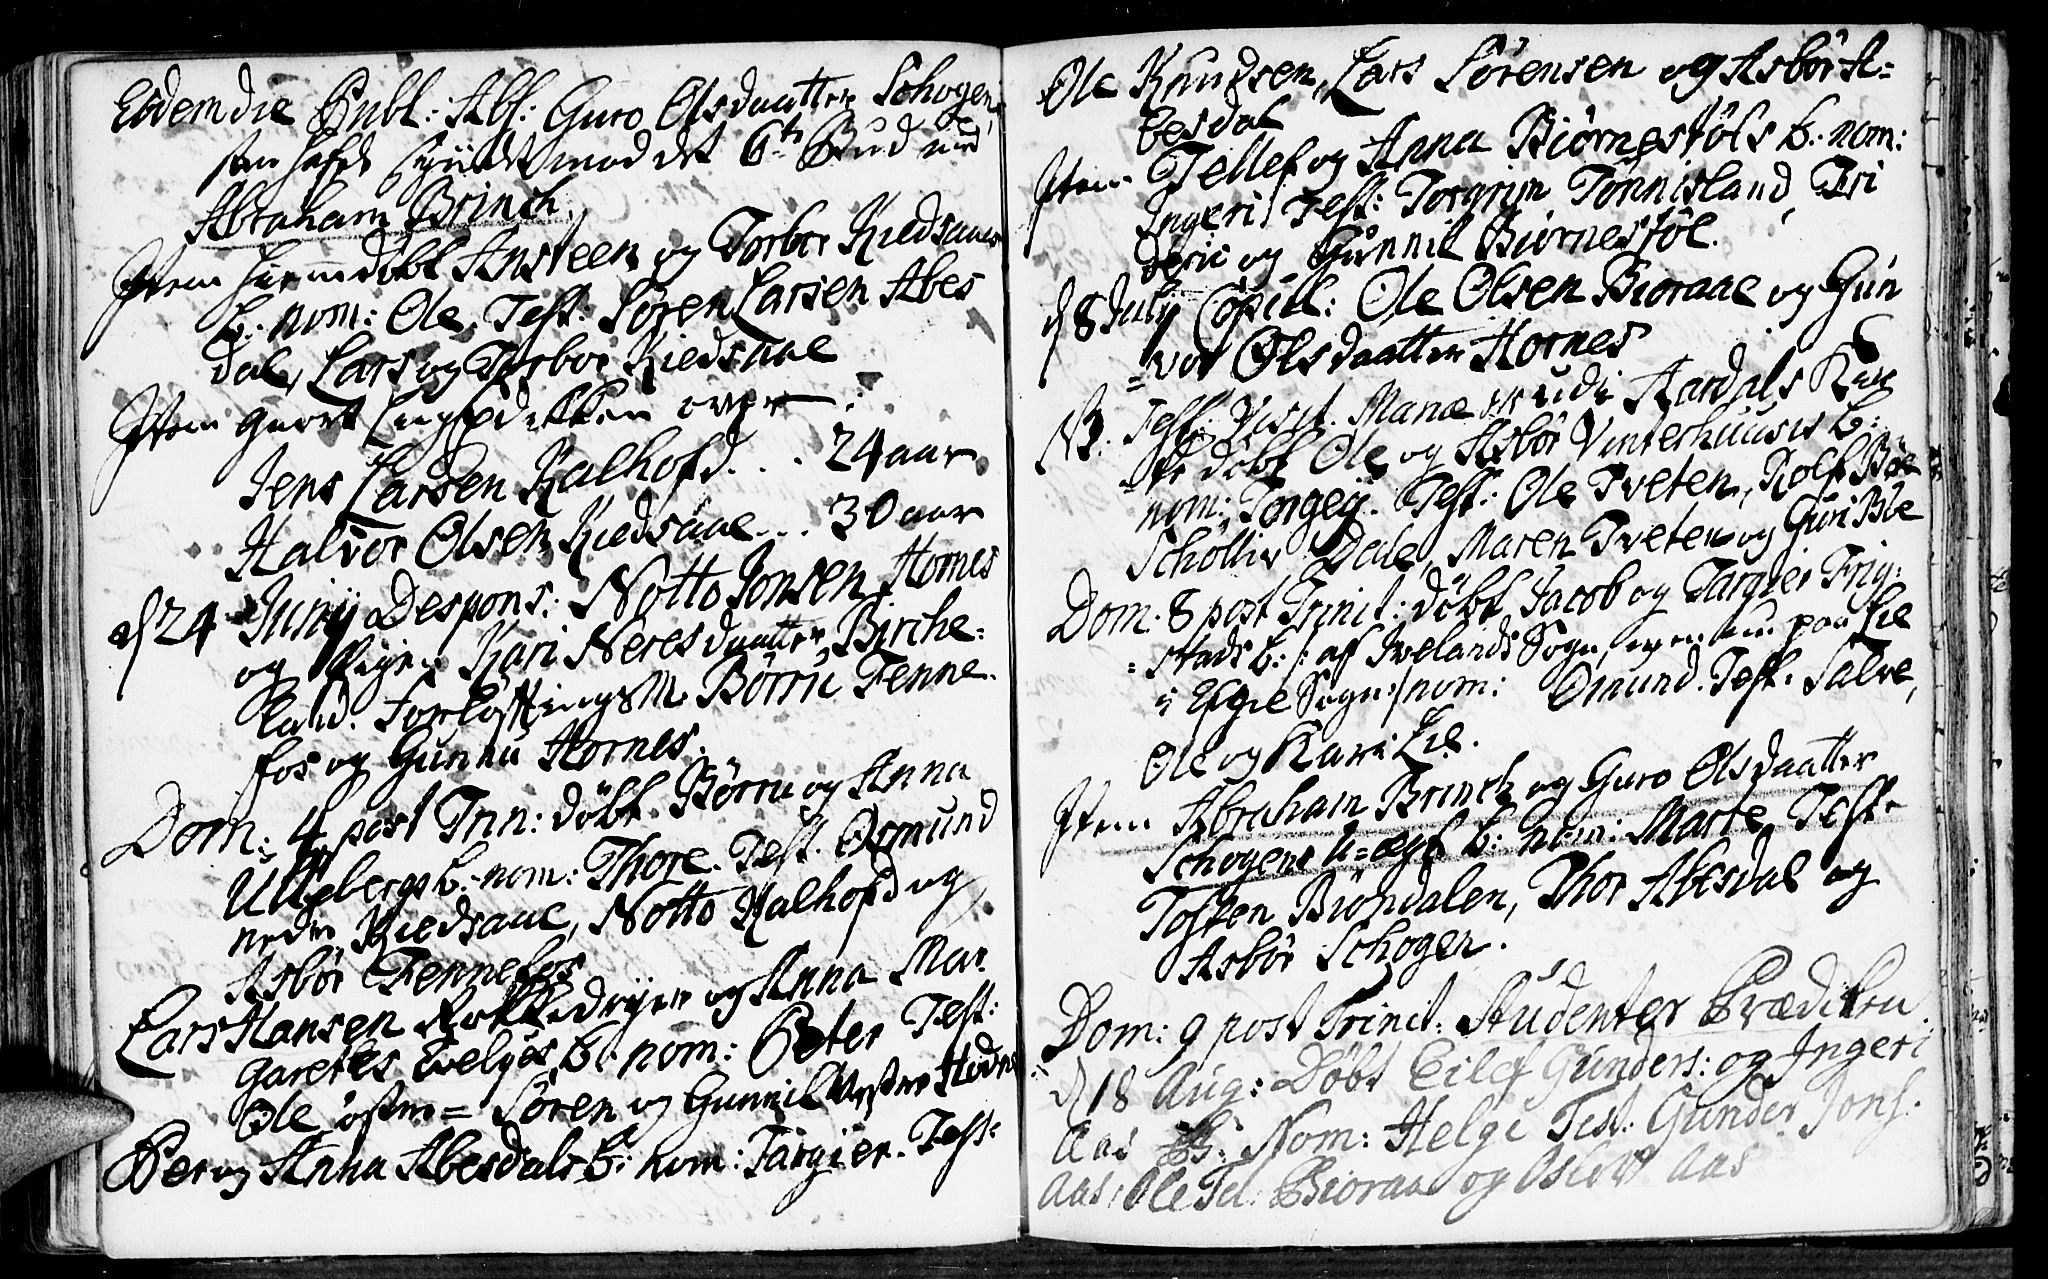 Eodem die Publ: Abs: Guro Olsdaatter Schogen,
som hafde syndet mod det 6te Bud med
Abraham Brinch.
Item hiemdøbt Ansteen og Torbor Kiedsaaes
b: nom: Ole. Test. Søren Larsen Abes
dal, Lars og Torbor Kiedsaae
Item giort Liigprædikken over
Jens Larsen Kalhofd... 24 aar
Halvor Olsen Kiedsaae... 30 aar
d 24 Junij Despons: Notto Jonsen Hornes
og Pigen Kari Neresdaatter Birche=
land. Forløftningsm. Børru Fenne=
fos og Gunnu Hornes.
Dom: 4 post Trin: døbt Børru og Anna
Ullebergs b: nom: Thore. Test. Osmund
nedre Kiedsaae, Notto Kalhofd og
Asbør Fennefos
Lars Hansen og Anna Mar
garetes b: nom: Peter Test:
Ole østre= Søren og Gunnil Westre Hodne
Per og Anna Abesdals b: nom: Targier. Test:
Ole Knudsen, Lars Sørensen og Asbør A=
besdal
Item Tellef og Anna Biørnestøls b: nom:
Ingeri Test: Torgrim Tønnisland, Fri
deric og Gunnil Biørnestøl.
d 8 July Copul: Ole Olsen Bioraae og Gun
=vor Olsdaatter Hornes
NB. Fest: Visit. Mariæ er udi Aardals Kir
=ke døbt Ole og Asbør Vinterhuuses b:
nom: Torgey. Test: Ole Tveten, Rolf Bøe
Schøllis Dale, Maren Tveten og Guri Bøe
Dom. 8 post Trinit: døbt Jacob og Targier Frig:
=stads b: /: af Ivelands Sogn, nu paa Lie
i Evie Sogn :/ nom: Omund. Test. Salve,
Ole og Kari Lie.
Item Abraham Brinch og Guro Olsdaatter
Schogens u=ægt b: nom: Marte, Test.
Tosten Biøndalen, Thor Abesdal og
Asbør Schogen.
Dom: 9 post Trinit: Studenter Prædiken.
d 18 Aug: Døbt Eilef Gunders: og Ingeri
Aas B: Nom: Helge Test: Gunder Jons:
Aas, Ole Bioraae og Aas